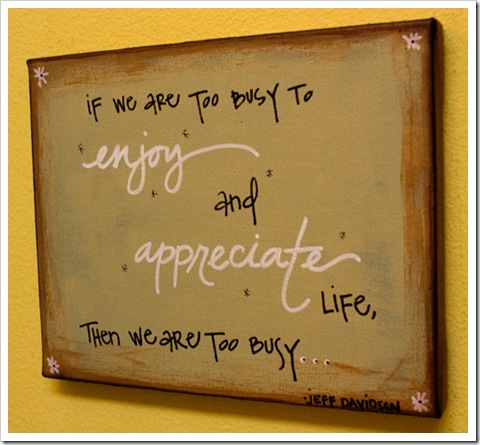 if we are too busy to
enjoy
and
appreciate
Life,
Then we are too busy...
-Jeff Davidson